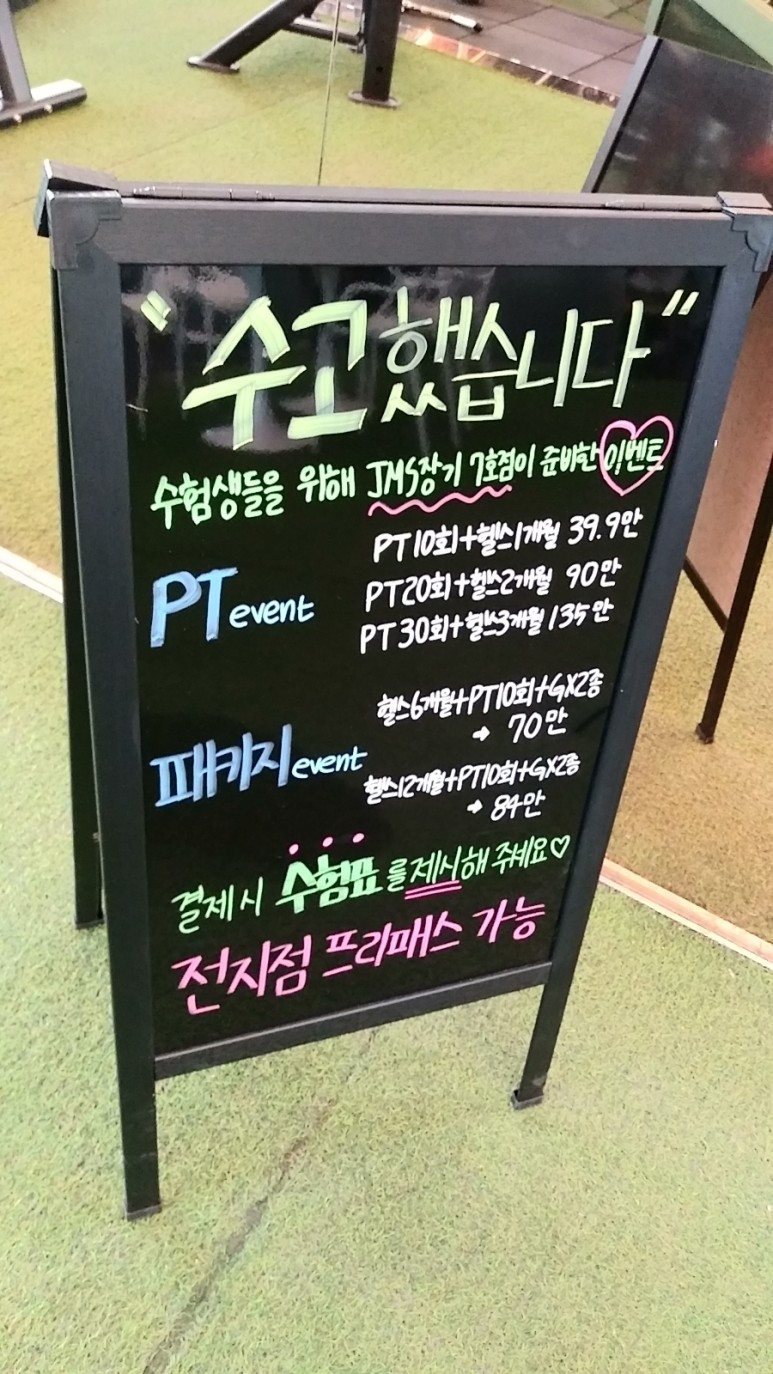 "수고했습니다"
수험생들을 위해 JMS장기 7호점이 준비한 이벤트
PT event
PT10회+헬스1개월 39.9만
PT20회+헬스2개월 90만
PT30회+헬스3개월 135만
패키지 event
헬스6개월+PT10회+GX2종
→ 70만
헬스12개월+PT10회+GX2종
→ 84만
결제시 수험표를 제시해 주세요♡
전지점 프리패스 가능